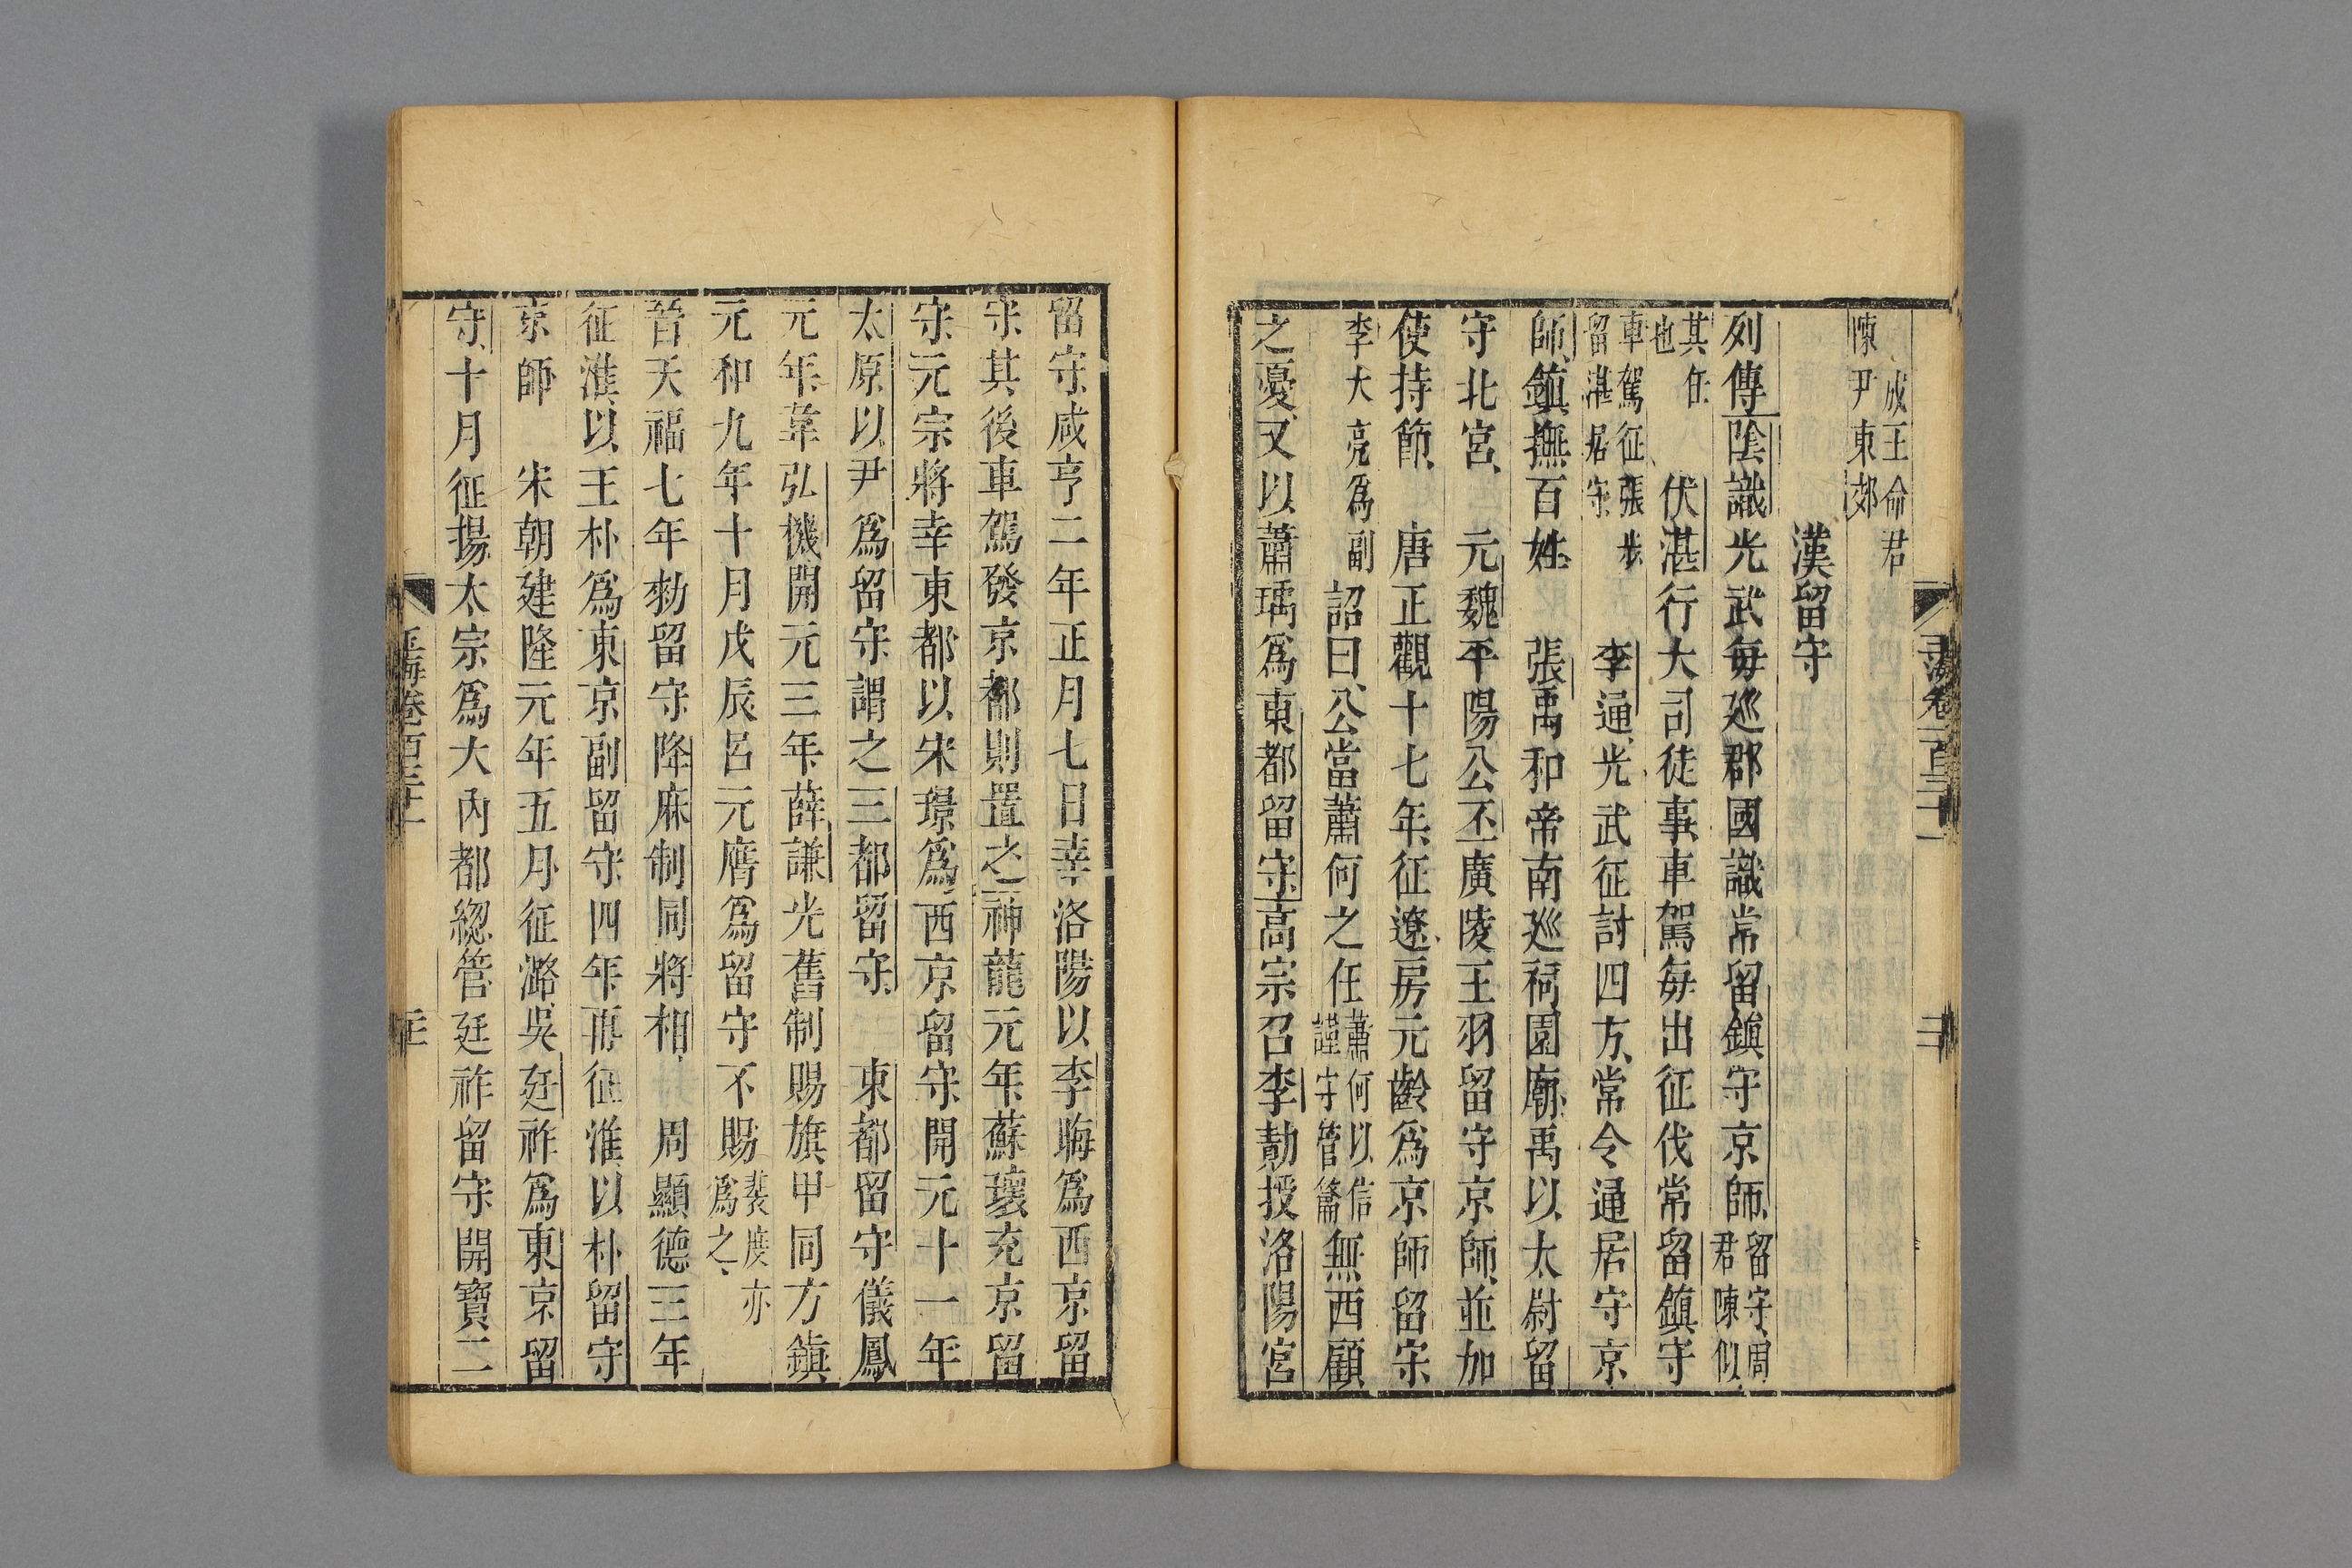 玉海卷一百三十一
二
成王命君
陳尹東郊
漢留守
列傳陰識光武每廵郡國識常留鎮守京師留守周
君陳似
其任
也伏湛行大司徒事車駕每出征伐常留鎮守
車駕征張步
留湛居守李通光武征討四方常令通居守京
師鎮撫百姓 張禹和帝南廵祠園廟禹以太尉留
守北宮 元魏平陽公丕廣陵王羽留守京師並加
使持節 唐正觀十七年征遼房元齡爲京師留守
李大亮爲副詔曰公當蕭何之任蕭何以信
謹守管籥無西顧
之憂又以蕭瑀爲東都留守高宗召李勣授洛陽宮
留守咸亨二年正月七日幸洛陽以李晦爲西京留
守其後車駕發京都則置之神龍元年蘇瓌充京留
守元宗將幸東都以宋璟爲西京留守開元十一年
太原以尹爲留守謂之三都留守 東都留守儀鳳
元年韋弘機開元三年薛謙光舊制賜旗甲同方鎮
元和九年十月戊辰呂元膺爲留守不賜裴度亦
爲之
晉天福七年勑留守降麻制同將相 周顯德三年
征淮以王朴爲東京副留守四年再征淮以朴留守
京師 宋朝建隆元年五月征潞吳廷祚爲東京留
守十月征揚太宗爲大內都緫管廷祚留守開寶二
玉海卷百三十一
三